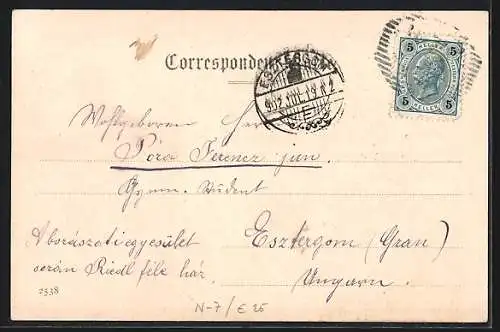 Correspondenz-Karte
ESZTERGOM
5 5
5 HELLER 5
Wohlgeboren Herr
Póra Ferencz jun.
Gymn. Student
A borászati egyesület
során Riedl féle ház.
Esztergom (Gran)
Ungarn.
2538
N-7/E 25